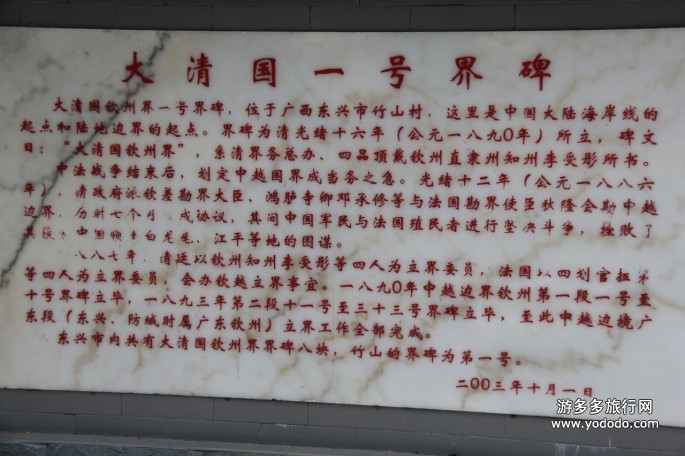 大清国一号界碑
大清国钦州界一号界碑，位于广西东兴市竹山村，这里是中国大陆海岸线的
起点和陆地边界的起点。界碑为清光绪十六年（公元一八九0年）所立，碑文
曰：“大清国钦州界”，系清界务总办、四品顶戴钦州直隶州知州李受彤所书。
中法战争结束后，划定中越国界成当务之急。光绪十二年（公元一八八六
年），清政府派钦差勘界大臣、鸿胪寺卿邓承修等与法国勘界使臣狄隆会勘中越
边界，历时七个月 成协议，其间中国军民与法国殖民者进行坚决斗争，挫败了
中国 白龙尾、江平等地的图谋。
八八七年，清廷以钦州知州李受彤等四人为立界委员，法国以四划官拒第
等四人为立界委员，会办钦越立界事宜 一八九0年中越边界钦州第一段一号至
十号界碑立毕，一八九三年第二段十一号至三十三号界碑立毕，至此中越边境广
东段（东兴、防城时属广东钦州）立界工作全部完成。
东兴市内共有大清国钦州界界碑八块，竹山的界碑为第一号。
二00三年十月一日
游多多旅行网
www.yododo.com